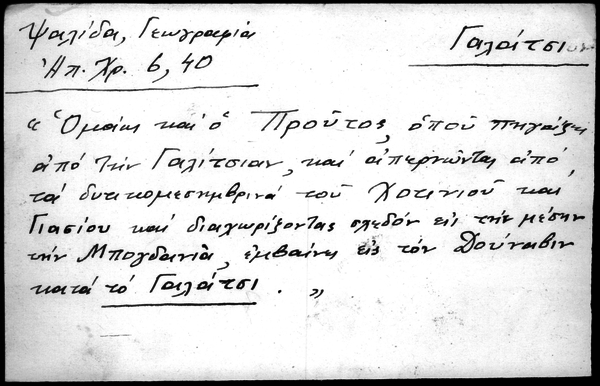 Ψαλίδα, Γεωγραφία
Ἠπ. Χρ. 6, 40
Γαλάτσι
« Ὁμοίως καί ὁ Προῦτος, ὁποῦ πηγάζει
ἀπό τήν Γαλίτσιαν, καί ἀπερνῶντας ἀπό
τά δυτικομεσημβρινά τοῦ Χοτινιοῦ καί
Γιασίου καί διαχωρίζοντας σχεδόν εἰς τήν μέσην
τήν Μπογδανία, ἐμβαίνει εἰς τόν Δούναβιν
κατά τό Γαλάτσι. »